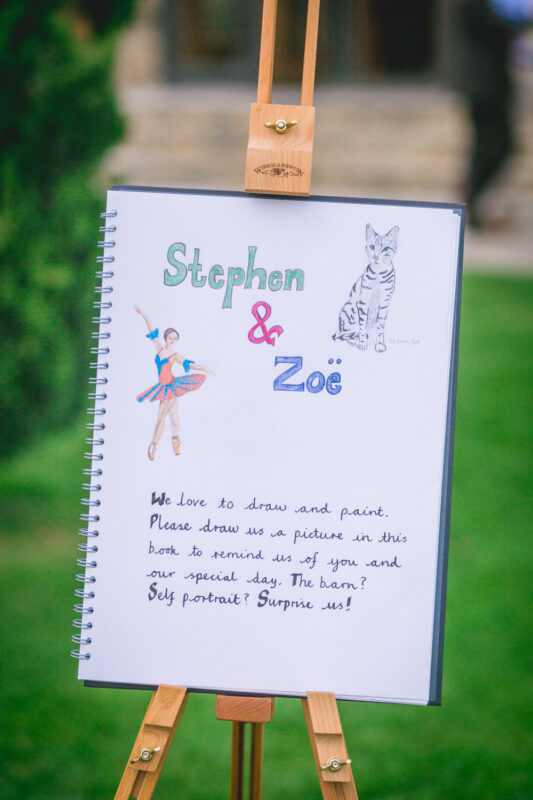 Stephen
&
Zoë
We love to draw and paint.
Please draw us a picture in this
book to remind us of you and
our special day. The barn?
Self portrait? Surprise us!